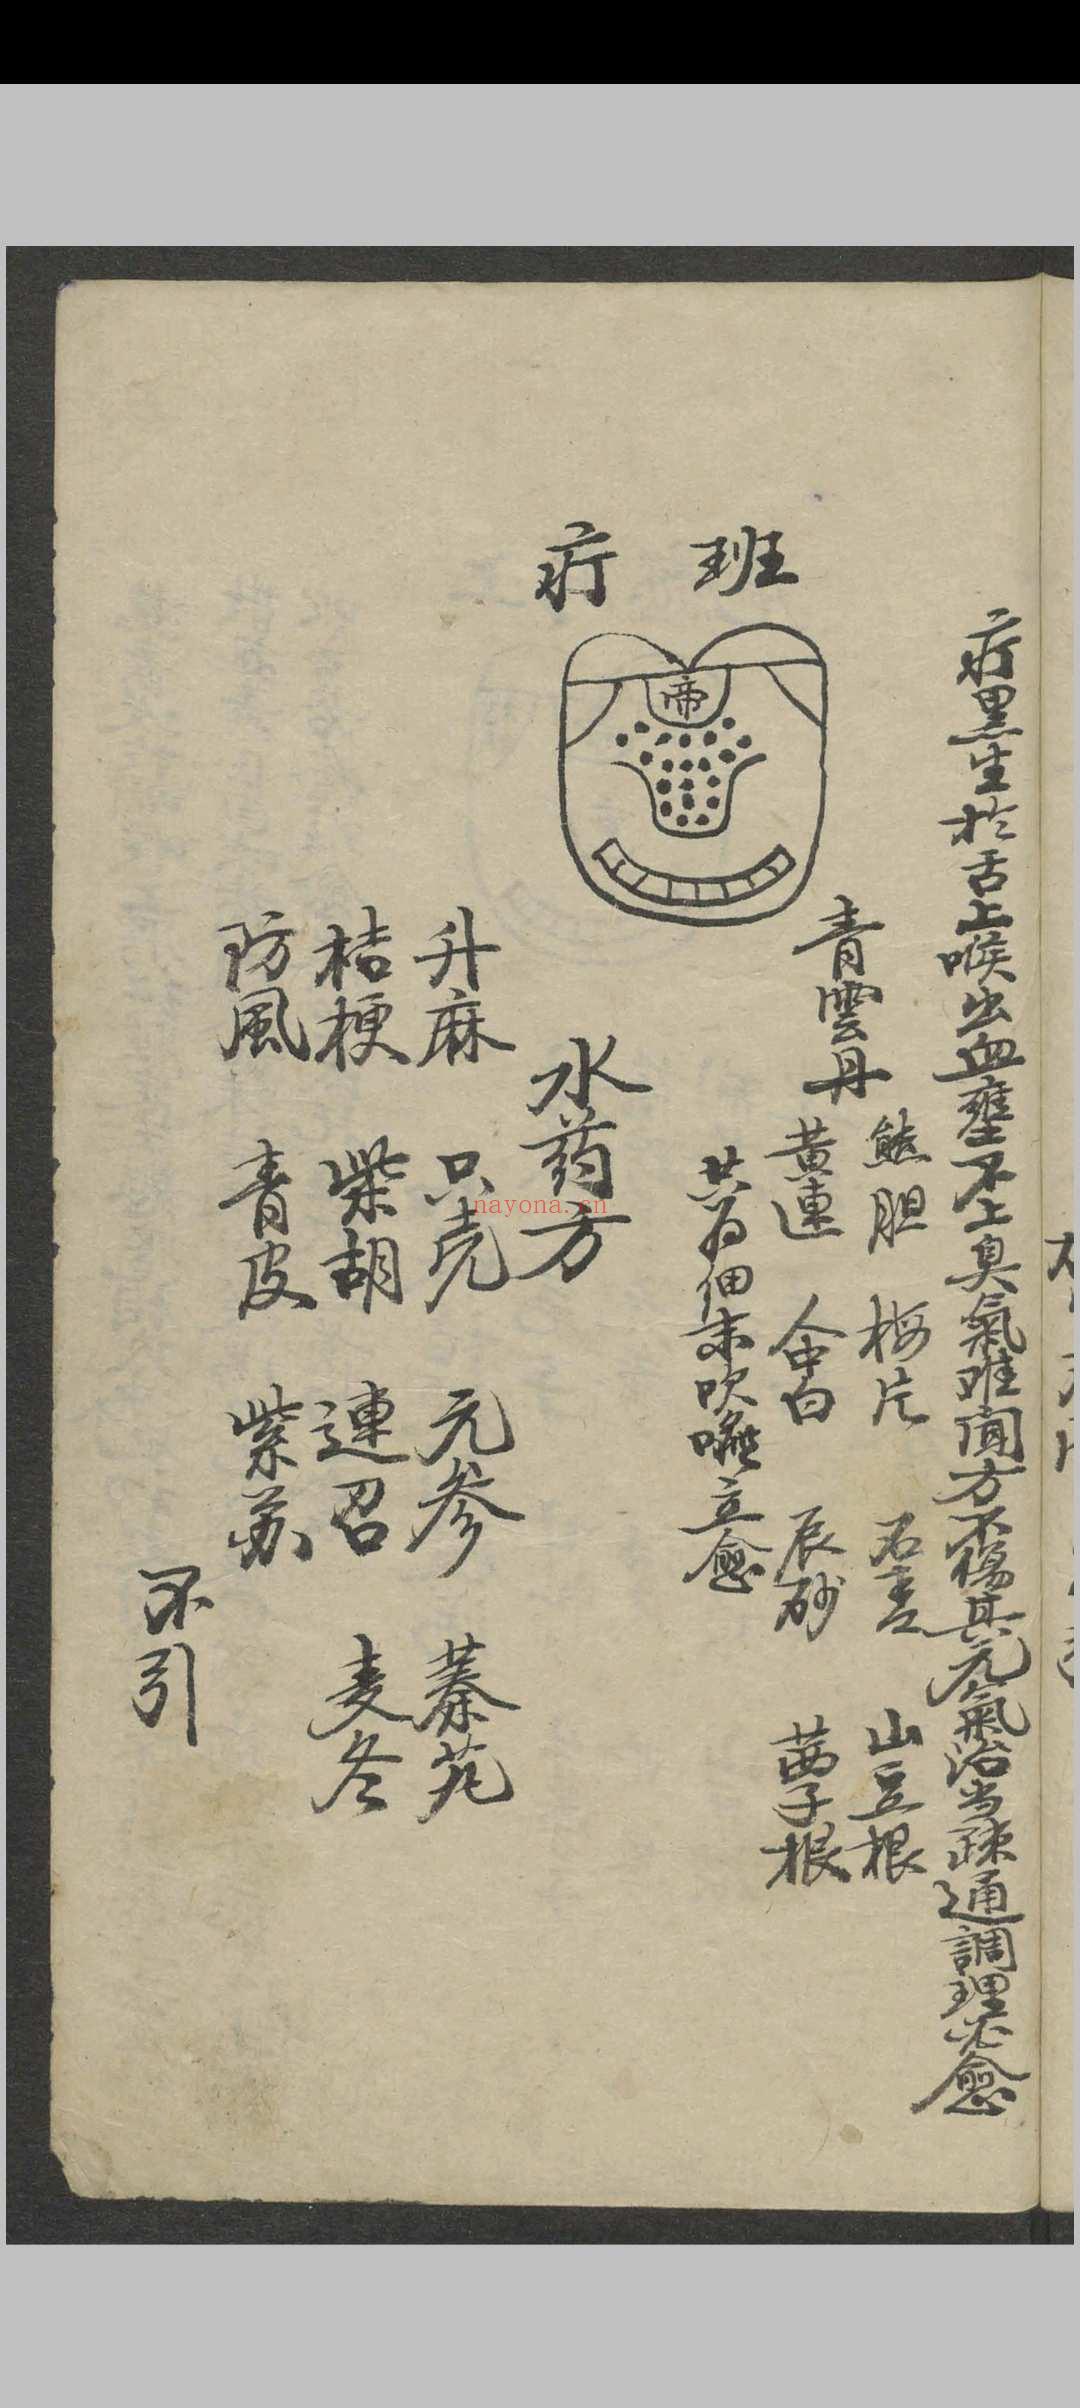 班疔
帝
疔黑生於舌上喉出血壅不上臭氣难闻方不傷其元氣治当疎通調理必愈
青雲丹
熊胆 梅片 石羔 山豆根
黄連 人中白 辰砂 茜子根
共为细末吹嚥立愈
水药方
升麻 只壳 元参 蓁艽
桔梗 柴胡 連召 麦冬
防風 青皮 紫苏
不引
nayona.cn